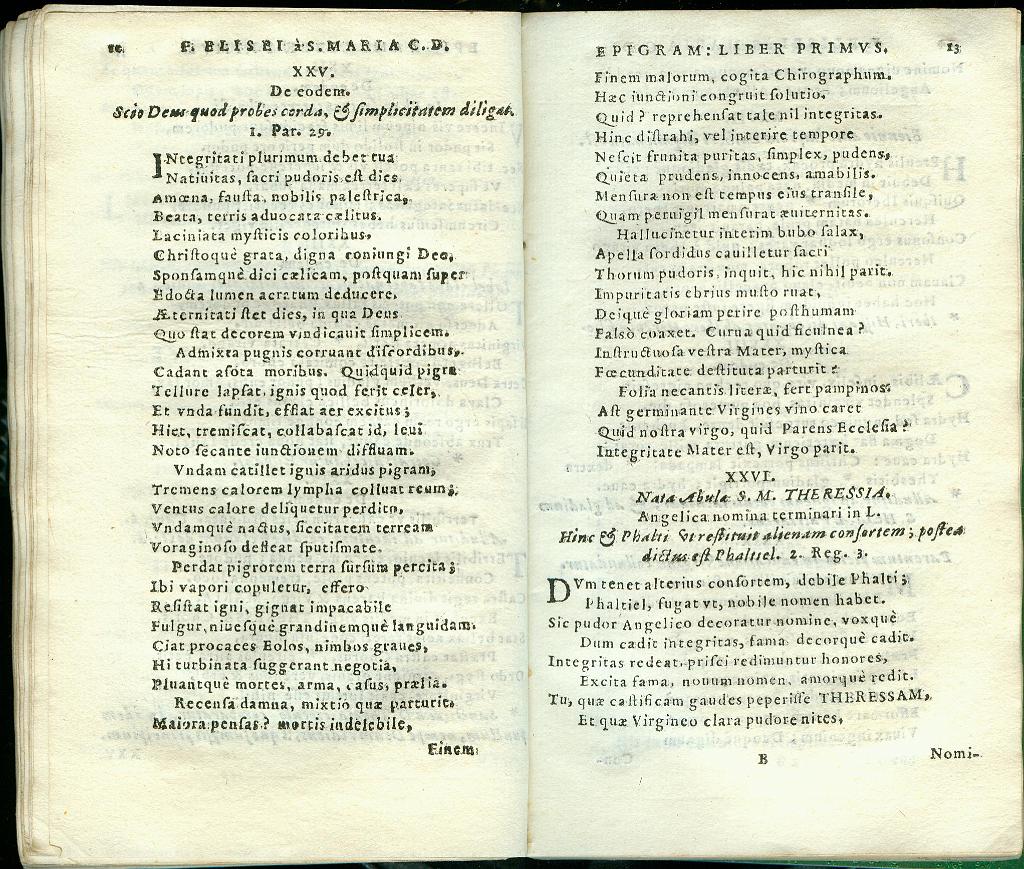 F. ELISEI à S. MARIA C. D.
XXV.
De eodem.
Scio Deus quod probes corda, & simplicitatem diligat.
1. Par. 29.
INtegritati plurimum debet tua
Natiuitas, sacri pudoris est dies.
Amœna, fausta, nobilis palestrica,
Beata, terris aduocata cælitus.
Laciniata mysticis coloribus,
Christoquè grata, digna coniungi Deo,
Sponsamquè dici cælicam, postquam super
Edocta lumen aeratum deducere.
Æternitati stet dies, in qua Deus
Quo stat decorem vindicauit simplicem.
Admixta pugnis corruant discordibus,
Cadant asota moribus. Quidquid pigra
Tellure lapsat, ignis quod ferit celer,
Et vnda fundit, efflat aer excitus;
Hiet, tremiscat, collabascat id, leui
Noto secante iunctionem diffluam.
Vndam catillet ignis aridus pigram,
Tremens calorem lympha colluat reum;
Ventus calore deliquetur perdito,
Vndamquè nactus, siccitatem terream
Voraginoso defleat sputismate.
Perdat pigrorem terra sursùm percita;
Ibi vapori copuletur, effero
Resistat igni, gignat impacabile
Fulgur, niuesquè grandinemquè languidam.
Ciat procaces Eolos, nimbos graues,
Hi turbinata suggerant negotia,
Pluantquè mortes, arma, casus, prælia.
Recensa damna, mixtio quæ parturit.
Maiora pensas? mortis indelebile,
Finem
EPIGRAM: LIBER PRIMVS. 13
Finem malorum, cogita Chirographum.
Hæc iunctioni congruit solutio.
Quid? reprehensat tale nil integritas.
Hinc distrahi, vel interire tempore
Nescit frunita puritas, simplex, pudens,
Quieta prudens, innocens, amabilis.
Mensura non est tempus eius transile,
Quam peruigil mensurat æuiternitas.
Hallucinetur interim bubo salax,
Apella sordidus cauilletur sacri
Thorum pudoris, inquit, hic nihil parit.
Impuritatis ebrius musto ruat,
Deiquè gloriam perire posthumam
Falsò coaxet. Curua quid ficulnea?
Infructuosa vestra Mater, mystica
Fœcunditate destituta parturit?
Folia necantis literæ, fert pampinos:
Ast germinante Virgines vino caret
Quid nostra virgo, quid Parens Ecclesia?
Integritate Mater est, Virgo parit.
XXVI.
Nata Abulæ S. M. THERESSIA.
Angelica nomina terminari in L.
Hinc & Phalti Vt restituit alienam consortem; postea
dictus est Phaltiel. 2. Reg. 3.
DVm tenet alterius consortem, debile Phalti;
Phaltiel, fugat vt, nobile nomen habet.
Sic pudor Angelico decoratur nomine, voxquè
Dum cadit integritas, fama decorquè cadit.
Integritas redeat, prisci redimuntur honores,
Excita fama, nouum nomen, amorquè redit.
Tu, quæ castificam gaudes peperisse THERESSAM,
Et quæ Virgineo clara pudore nites,
B Nomi-